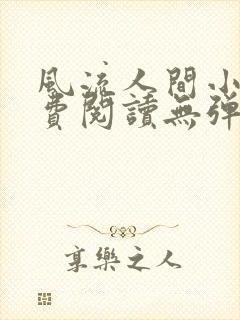 風流人間小
費閱讀無彈
享樂之人